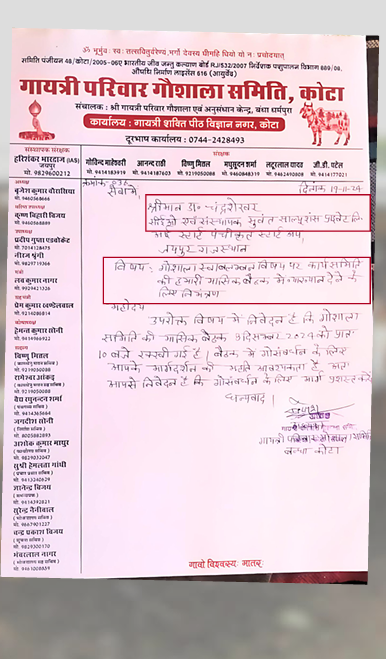 ॐ भूर्भुवः स्वः तत्सवितुर्वरेण्यं भर्गो देवस्य धीमहि धियो यो नः प्रचोदयात्
समिति पंजीयन 48/कोटा/2005-06 एवं भारतीय जीव जन्तु कल्याण बोर्ड RJ/532/2007 निर्देशक पशुपालन विभाग 889/09,
औषधि निर्माण लाइसेंस 616 (आयुर्वेद)
गायत्री परिवार गौशाला समिति, कोटा
संचालक : श्री गायत्री परिवार गौशाला एवं अनुसंधान केन्द्र, बंधा धर्मपुरा
कार्यालय : गायत्री शक्ति पीठ विज्ञान नगर, कोटा
दूरभाष कार्यालय : 0744-2428493
संस्थापक संरक्षक
हरिशंकर भारद्वाज (IAS)
जयपुर
मो. 9829600212
संरक्षक
गोविन्द माहेश्वरी
मो. 9414183919
आनन्द राठी
मो. 9414187603
विष्णु मित्तल
मो. 9219050088
मधुसूदन शर्मा
मो. 9460848916
लटूरलाल यादव
मो. 9462490808
जी.डी. पटेल
मो. 9414177021
अध्यक्ष
मो. 9460568666
कृष्ण बिहारी विजय
मो. 9460569889
प्रदीप गुप्ता एडवोकेट
मो. 7014128475
नीरज धूंगी
मो. 9829719766
मंत्री
लव कुमार नागर
मो. 9929421326
सह मंत्री
प्रेम कुमार खण्डेलवाल
मो. 9214080814
कोषाध्यक्ष
हेमन्त कुमार सोनी
मो. 9414969922
सदस्य
विष्णु मित्तल
मो. 9219050088
रामेश्वर आंकड़
मो. 9219050088
वैद्य रघुनन्दन शर्मा
मो. 9414365664
जगदीश सोनी
मो. 8005882893
अशोक कुमार माथुर
मो. 9829032047
सुश्री हेमलता गांधी
मो. 9413240829
ज्ञानेन्द्र विजय
मो. 9414392831
सुरेन्द्र नैनीवाल
मो. 9667901227
चन्द्र प्रकाश विजय
मो. 9829300170
भंवरलाल नागर
मो. 9461008859
दिनांक 19-11-24
सेवामें
श्रीमान डॉ॰ चंद्रशेखर
जयपुर राजस्थान
विषय : गौशाला स्वावलम्बन विषय पर कार्य समिति
की हमारी मासिक बैठक में व्याख्यान देने के
लिए निमंत्रण
महोदय
उपरोक्त विषय में निवेदन है कि गौशाला
समिति की मासिक बैठक 9 दिसम्बर 2024 को प्रातः
10 बजे रक्खी गई है। बैठक में गौसंवर्धन के लिए
आपके मार्गदर्शन की महति आवश्यकता है अतः
आपसे निवेदन है कि गौसंवर्धन के लिए मार्ग प्रशस्त करें
धन्यवाद।
गायत्री परिवार गौशाला समिति
बन्धा कोटा
गावो विश्वस्यः मातरः